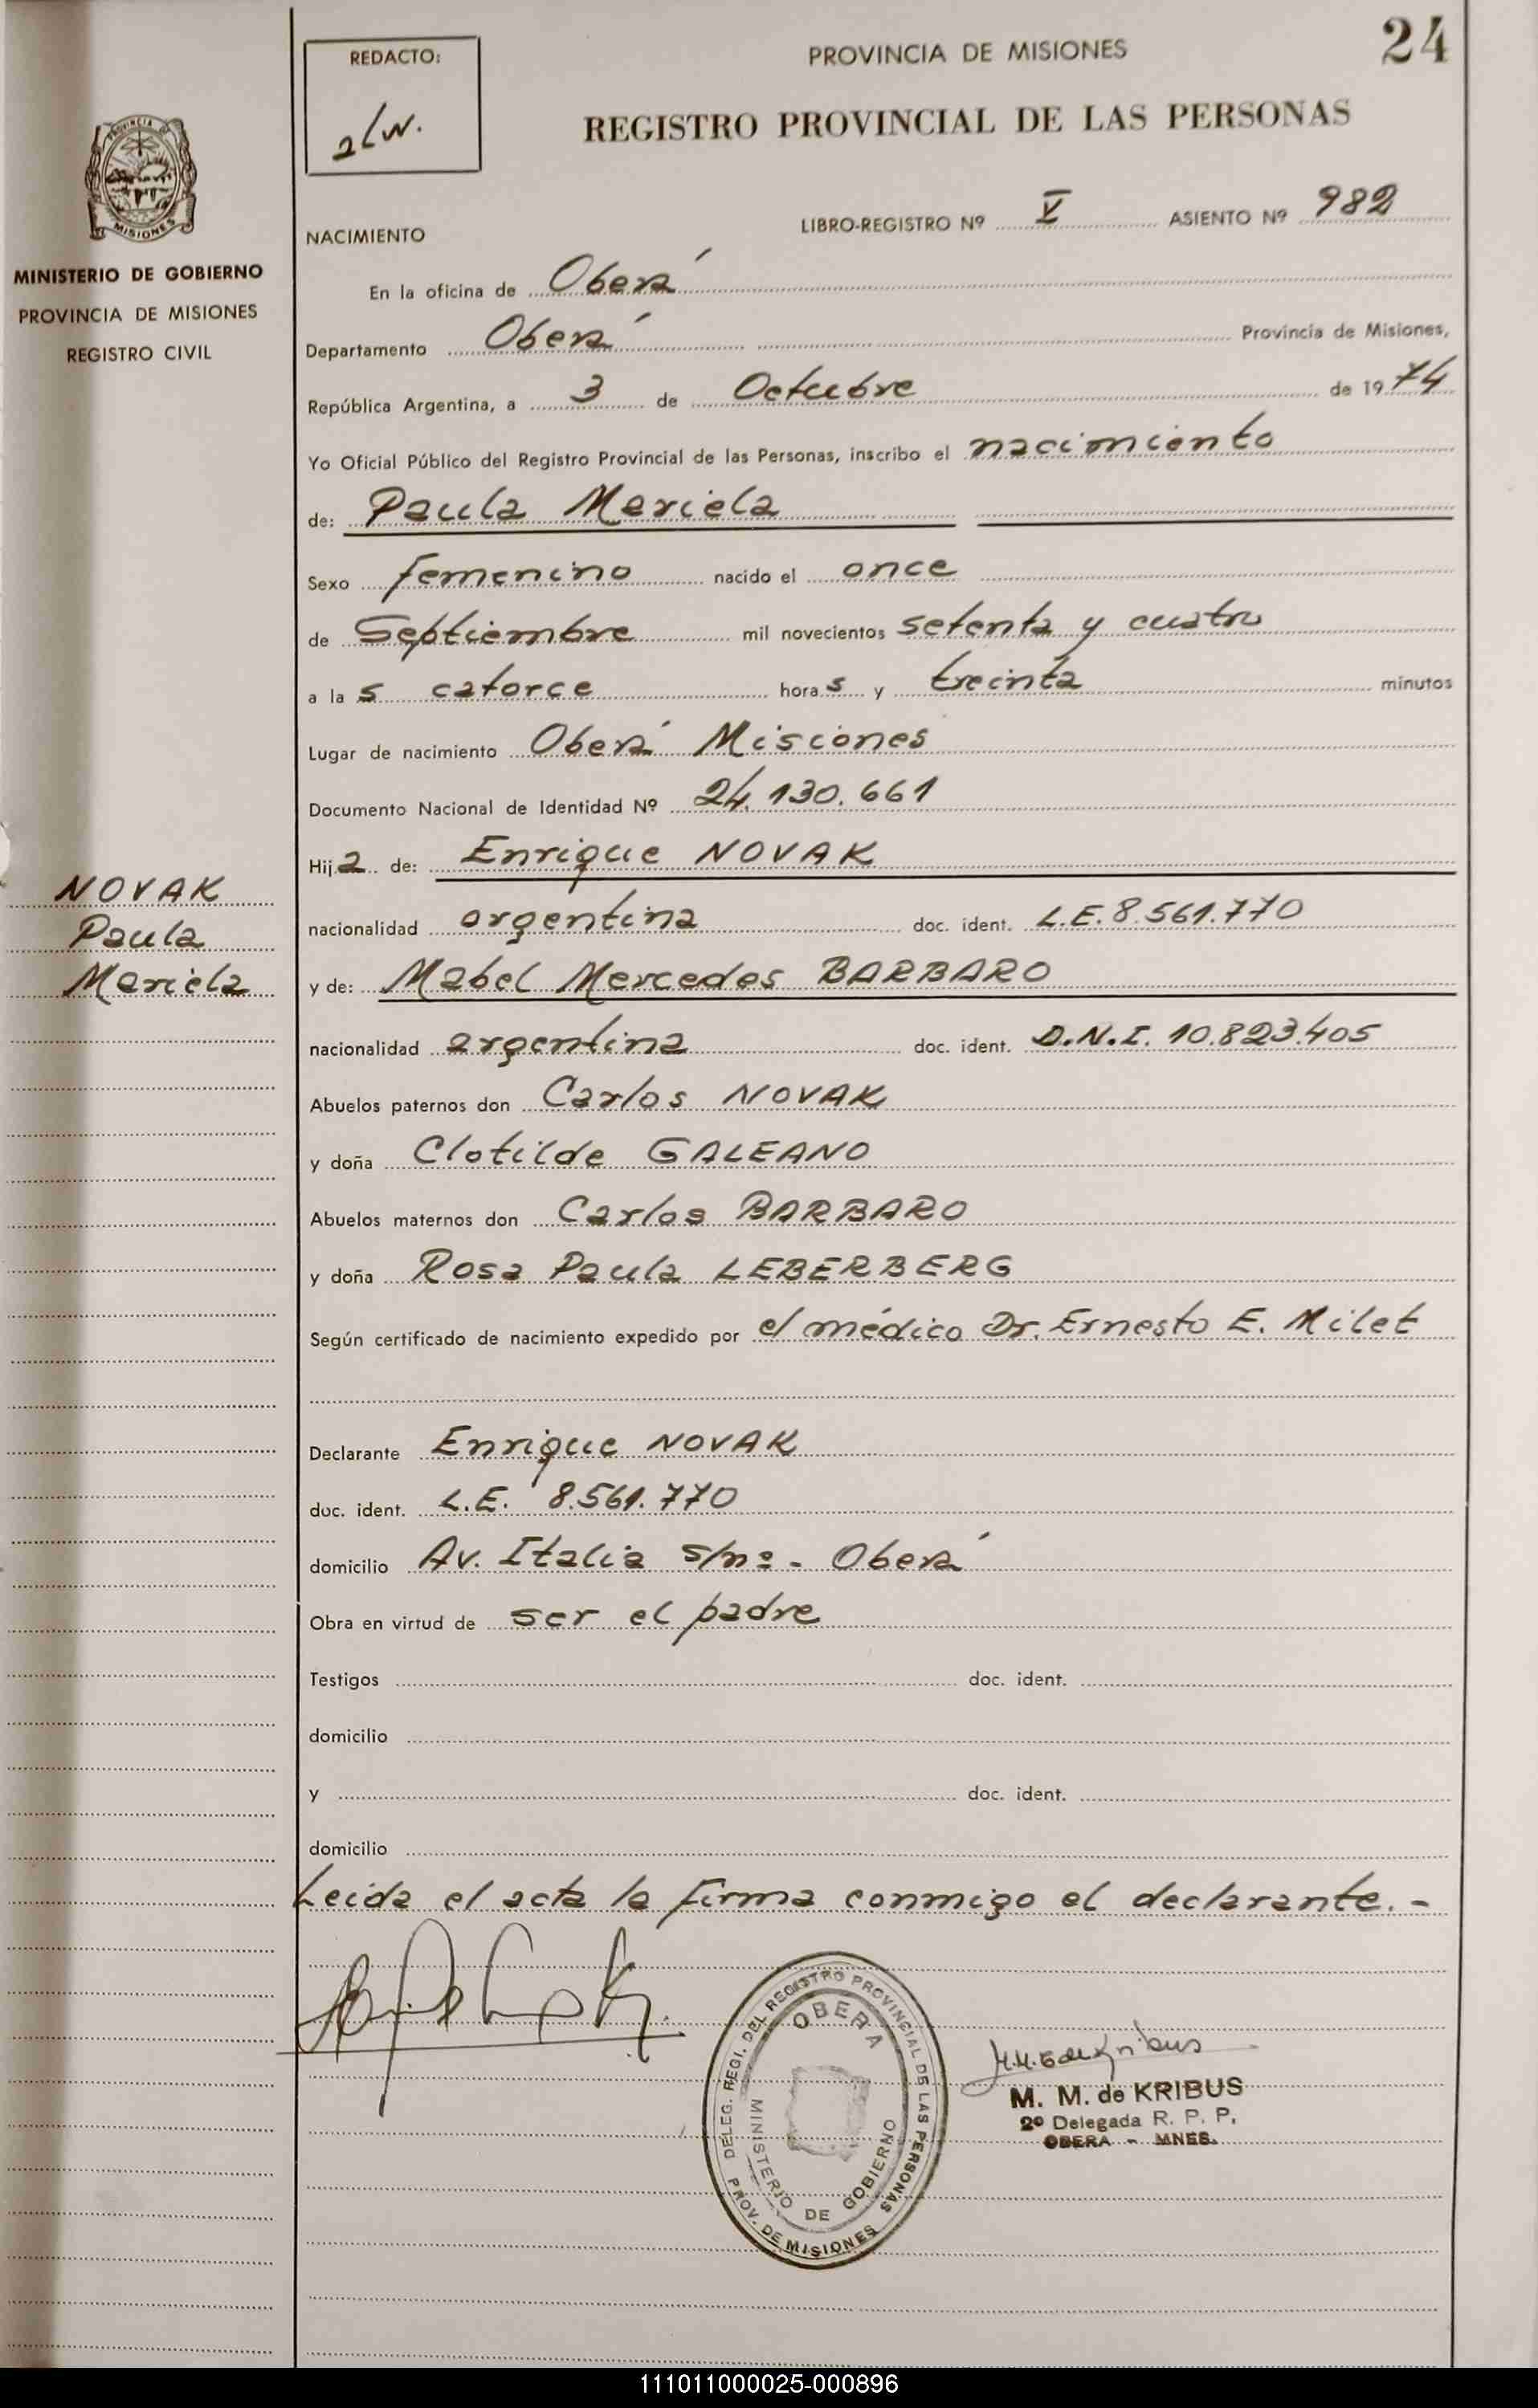 24
REDACTO:
PROVINCIA DE MISIONES
REGISTRO PROVINCIAL DE LAS PERSONAS
PROVINCIA DE
MISIONES
MINISTERIO DE GOBIERNO
PROVINCIA DE MISIONES
REGISTRO CIVIL
NACIMIENTO LIBRO-REGISTRO Nº V ASIENTO Nº 982
En la oficina de Oberá
Departamento Oberá Provincia de Misiones,
República Argentina, a 3 de Octubre de 1974
Yo Oficial Público del Registro Provincial de las Personas, inscribo el nacimiento
de: Paula Mariela
Sexo femenino nacido el once
de Septiembre mil novecientos setenta y cuatro
a las catorce horas y treinta minutos
Lugar de nacimiento Oberá Misiones
Documento Nacional de Identidad Nº 24.130.661
Hija de: Enrique NOVAK
NOVAK
Paula
Mariela
nacionalidad argentina doc. ident. L.E. 8.561.770
y de: Mabel Mercedes BARBARO
nacionalidad argentina doc. ident. D.N.I. 10.823.405
Abuelos paternos don Carlos NOVAK
y doña Clotilde GALEANO
Abuelos maternos don Carlos BARBARO
y doña Rosa Paula LEBERBERG
Según certificado de nacimiento expedido por el médico Dr. Ernesto E. Milet
Declarante Enrique NOVAK
doc. ident. L.E. 8.561.770
domicilio Av. Italia s/nº - Oberá
Obra en virtud de ser el padre
Testigos doc. ident.
domicilio
y doc. ident.
domicilio
Leida el acta la firma conmigo el declarante.-
DELEG. REGI. DEL REGISTRO PROVINCIAL DE LAS PERSONAS
OBERA
MINISTERIO DE GOBIERNO
PROV. DE MISIONES
M. M. de KRIBUS
2º Delegada R. P. P.
OBERA - MNES.
111011000025-000896